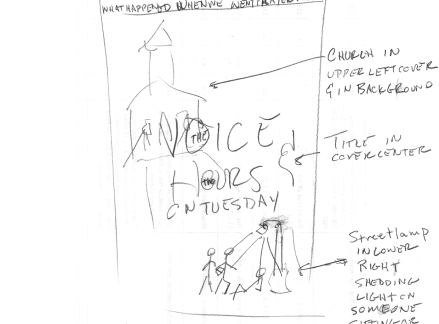 WHAT HAPPENED WHEN WE WENT
CHURCH IN
UPPER LEFT COVER
& IN BACKGROUND
THE
ICE
TITLE IN
COVER CENTER
HOURS
ON TUESDAY
Streetlamp
IN LOWER
RIGHT
SHEDDING
LIGHT ON
SOMEONE